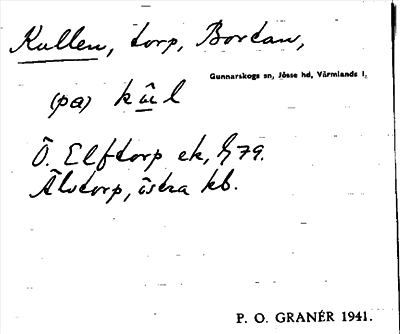 Kullen, torp, Bortan,
Gunnarskogs sn, Jösse hd, Värmlands l.
(på) kûl
Ö. Elftorp ek, § 79.
Älvtorp, östra kb.
P. O. GRANÉR 1941.